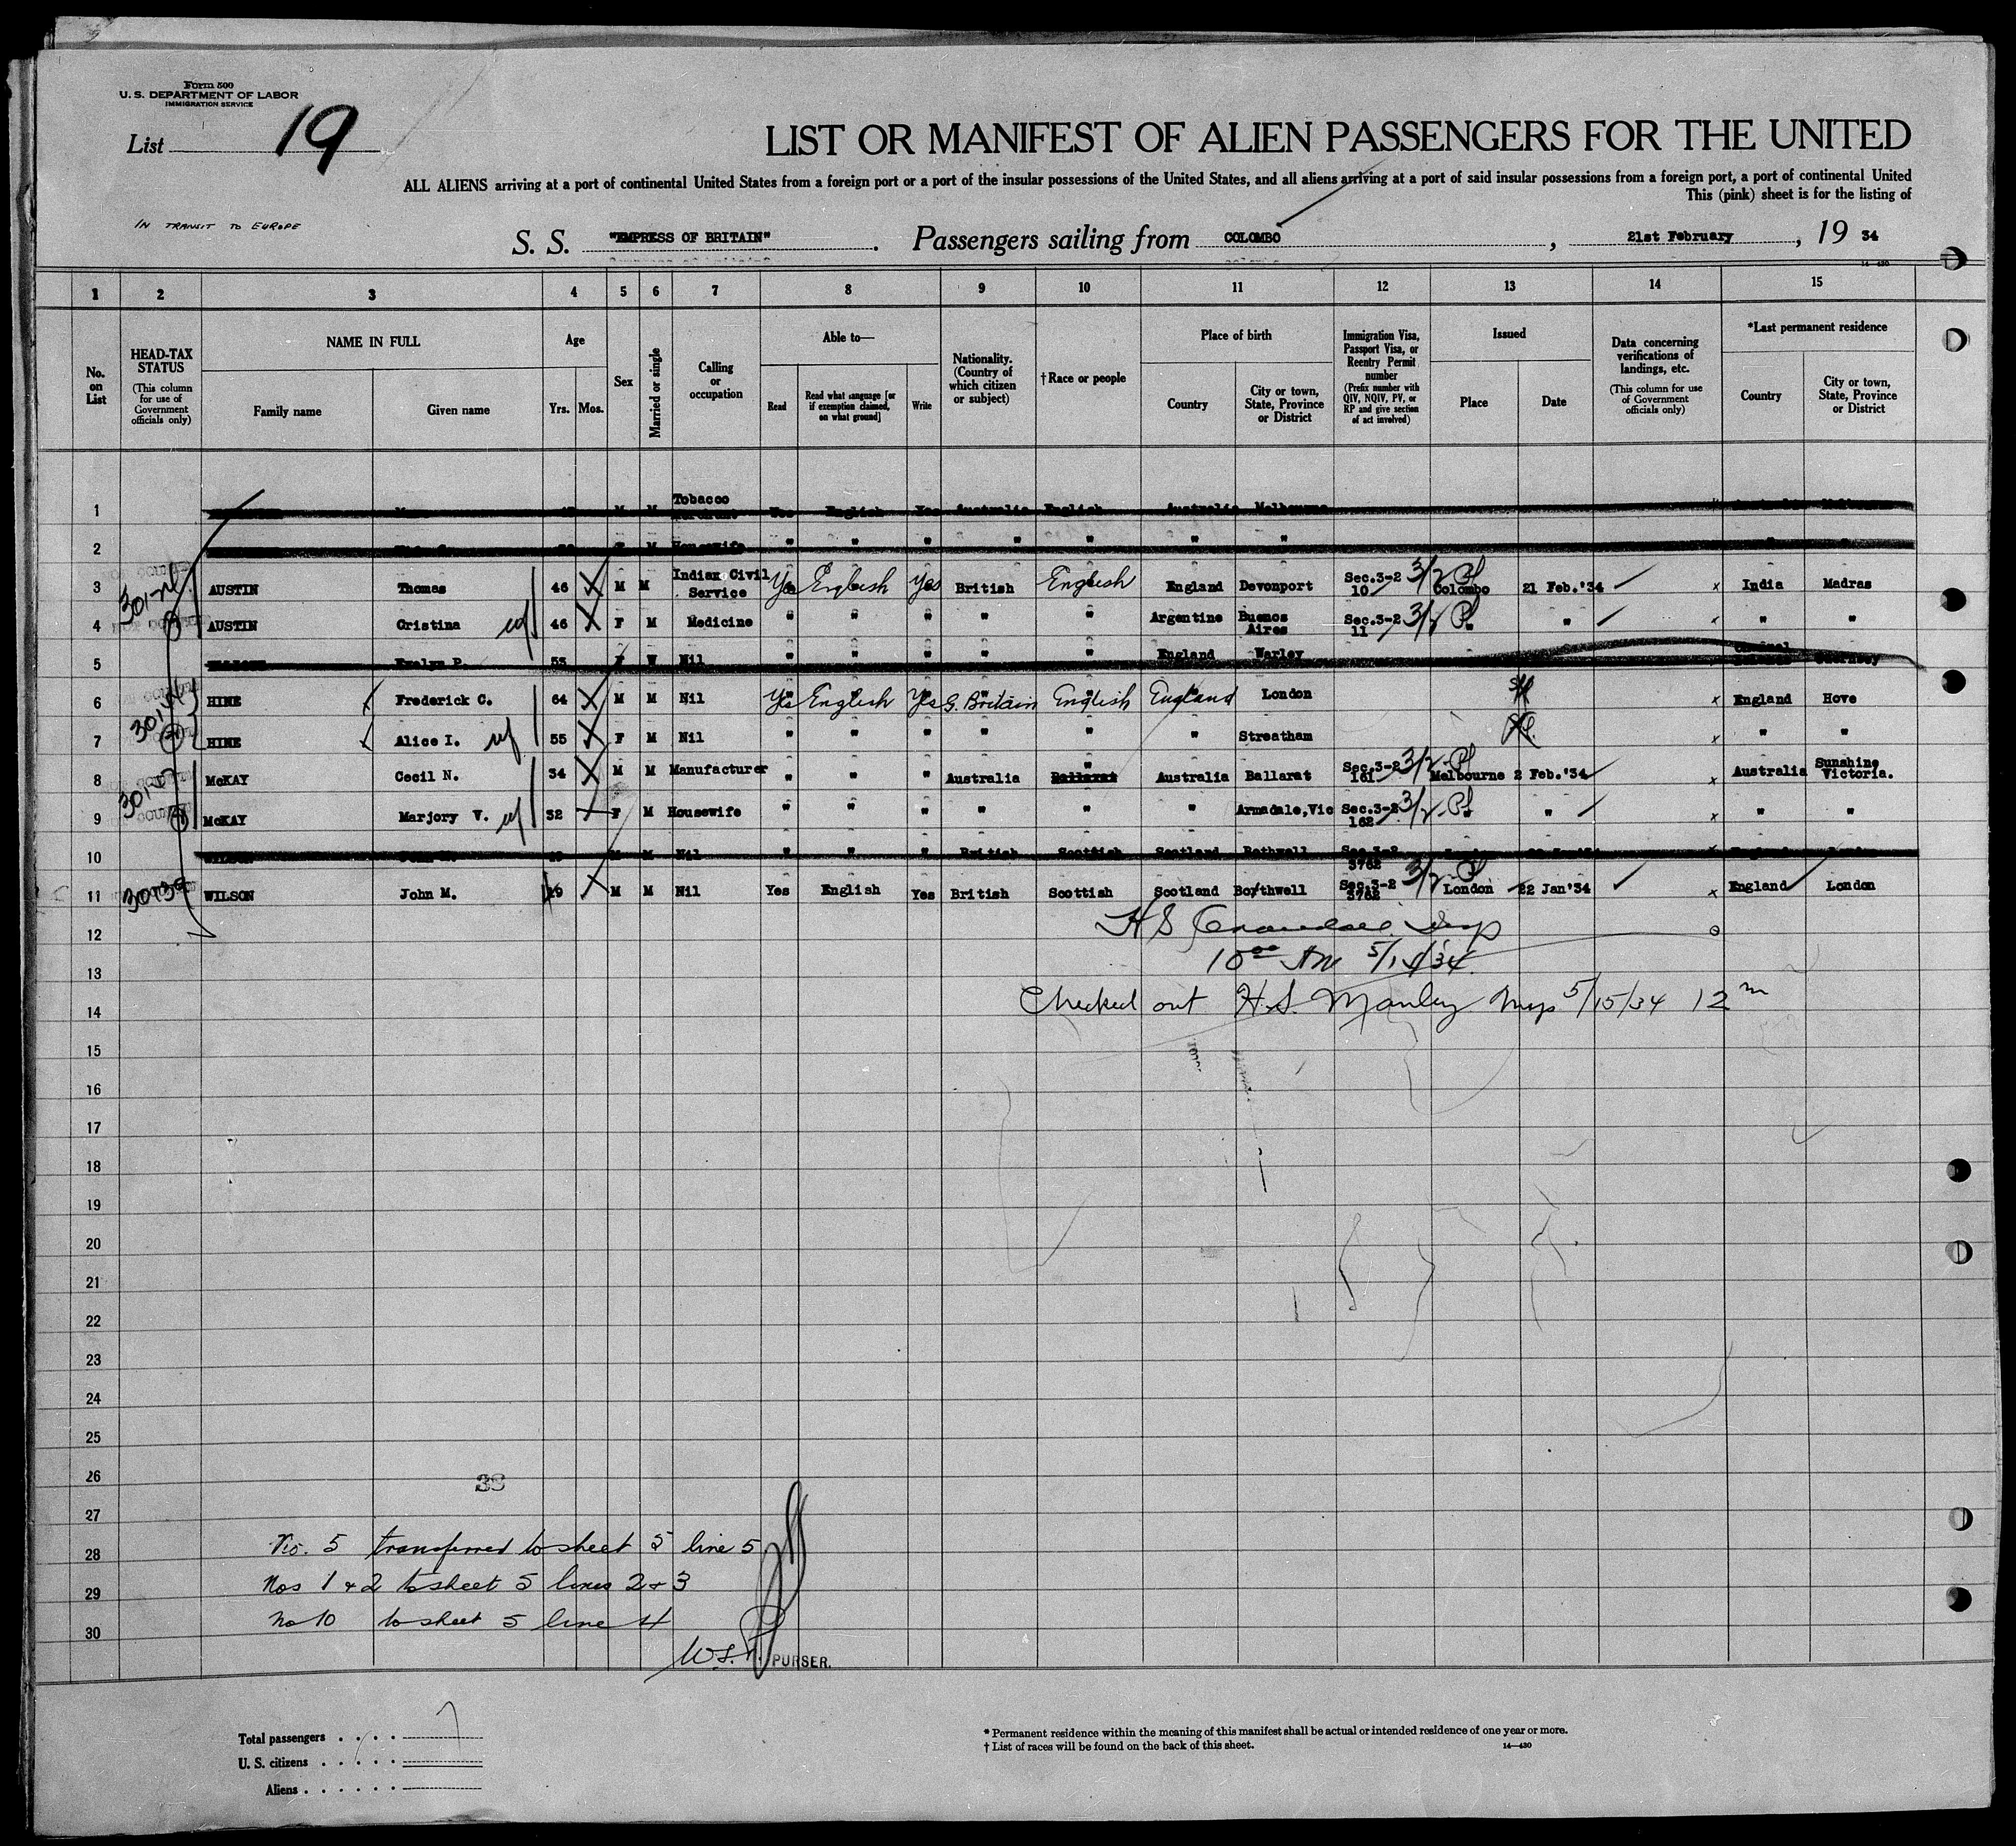 Form 500
U. S. DEPARTMENT OF LABOR
IMMIGRATION SERVICE
List 19
LIST OR MANIFEST OF ALIEN PASSENGERS FOR THE UNITED
ALL ALIENS arriving at a port of continental United States from a foreign port or a port of the insular possessions of the United States, and all aliens arriving at a port of said insular possessions from a foreign port, a port of continental United
This (pink) sheet is for the listing of
IN TRANSIT TO EUROPE
S. S. "EMPRESS OF BRITAIN". Passengers sailing from COLOMBO, 21st February, 19 34
14-430
1 2 3 4 5 6 7 8 9 10 11 12 13 14 15
No. on List
HEAD-TAX STATUS (This column for use of Government officials only)
NAME IN FULL
Family name Given name
Age
Yrs. Mos.
Sex
Married or single
Calling or occupation
Able to—
Read
Read what language [or if exemption claimed, on what ground]
Write
Nationality. (Country of which citizen or subject)
†Race or people
Place of birth
Country
City or town, State, Province or District
Immigration Visa, Passport Visa, or Reentry Permit number (Prefix number with QIV, NQIV, PV, or RP and give section of act involved)
Issued
Place Date
Data concerning verifications of landings, etc. (This column for use of Government officials only)
*Last permanent residence
Country
City or town, State, Province or District
1 M M Tobacco Yes English Yes Australia English Australia Melbourne
2 F M Housewife " " " " " " "
3 AUSTIN Thomas 46 M M Indian Civil Service Yes English Yes British English England Devonport Sec.3-2 10 Colombo 21 Feb.'34 x India Madras
4 AUSTIN Cristina 46 F M Medicine " " " " " Argentine Buenos Aires Sec.3-2 11 " " x " "
5 Evelyn P. 53 F W Nil " " " " " England Warley Guernsey
6 HINE Frederick C. 64 M M Nil Yes English Yes G. Britain English England London x England Hove
7 HINE Alice I. 55 F M Nil " " " " " " Streatham x " "
8 McKAY Cecil N. 34 M M Manufacturer " " " Australia " Australia Ballarat Sec.3-2 161 Melbourne 2 Feb.'34 x Australia Sunshine Victoria.
9 McKAY Marjory V. 32 F M Housewife " " " " " " Armadale,Vic Sec.3-2 162 " " x " "
10 WILSON John M. M M Nil " " " British Scottish Scotland Bothwell Sec.3-2 3762 England
11 30139 WILSON John M. 49 M M Nil Yes English Yes British Scottish Scotland Bothwell Sec.3-2 3762 London 22 Jan'34 x England London
12
10 00 AM 5/14/34
13
Checked out H.S. Manley Insp 5/15/34 12 m
14
15
16
17
18
19
20
21
22
23
24
25
26
38
27
No. 5 transferred to sheet 5 line 5
28
Nos 1 & 2 to sheet 5 lines 2 & 3
29
No 10 to sheet 5 line 4
30
PURSER.
Total passengers 7
U. S. citizens
Aliens
* Permanent residence within the meaning of this manifest shall be actual or intended residence of one year or more.
† List of races will be found on the back of this sheet.
14—430